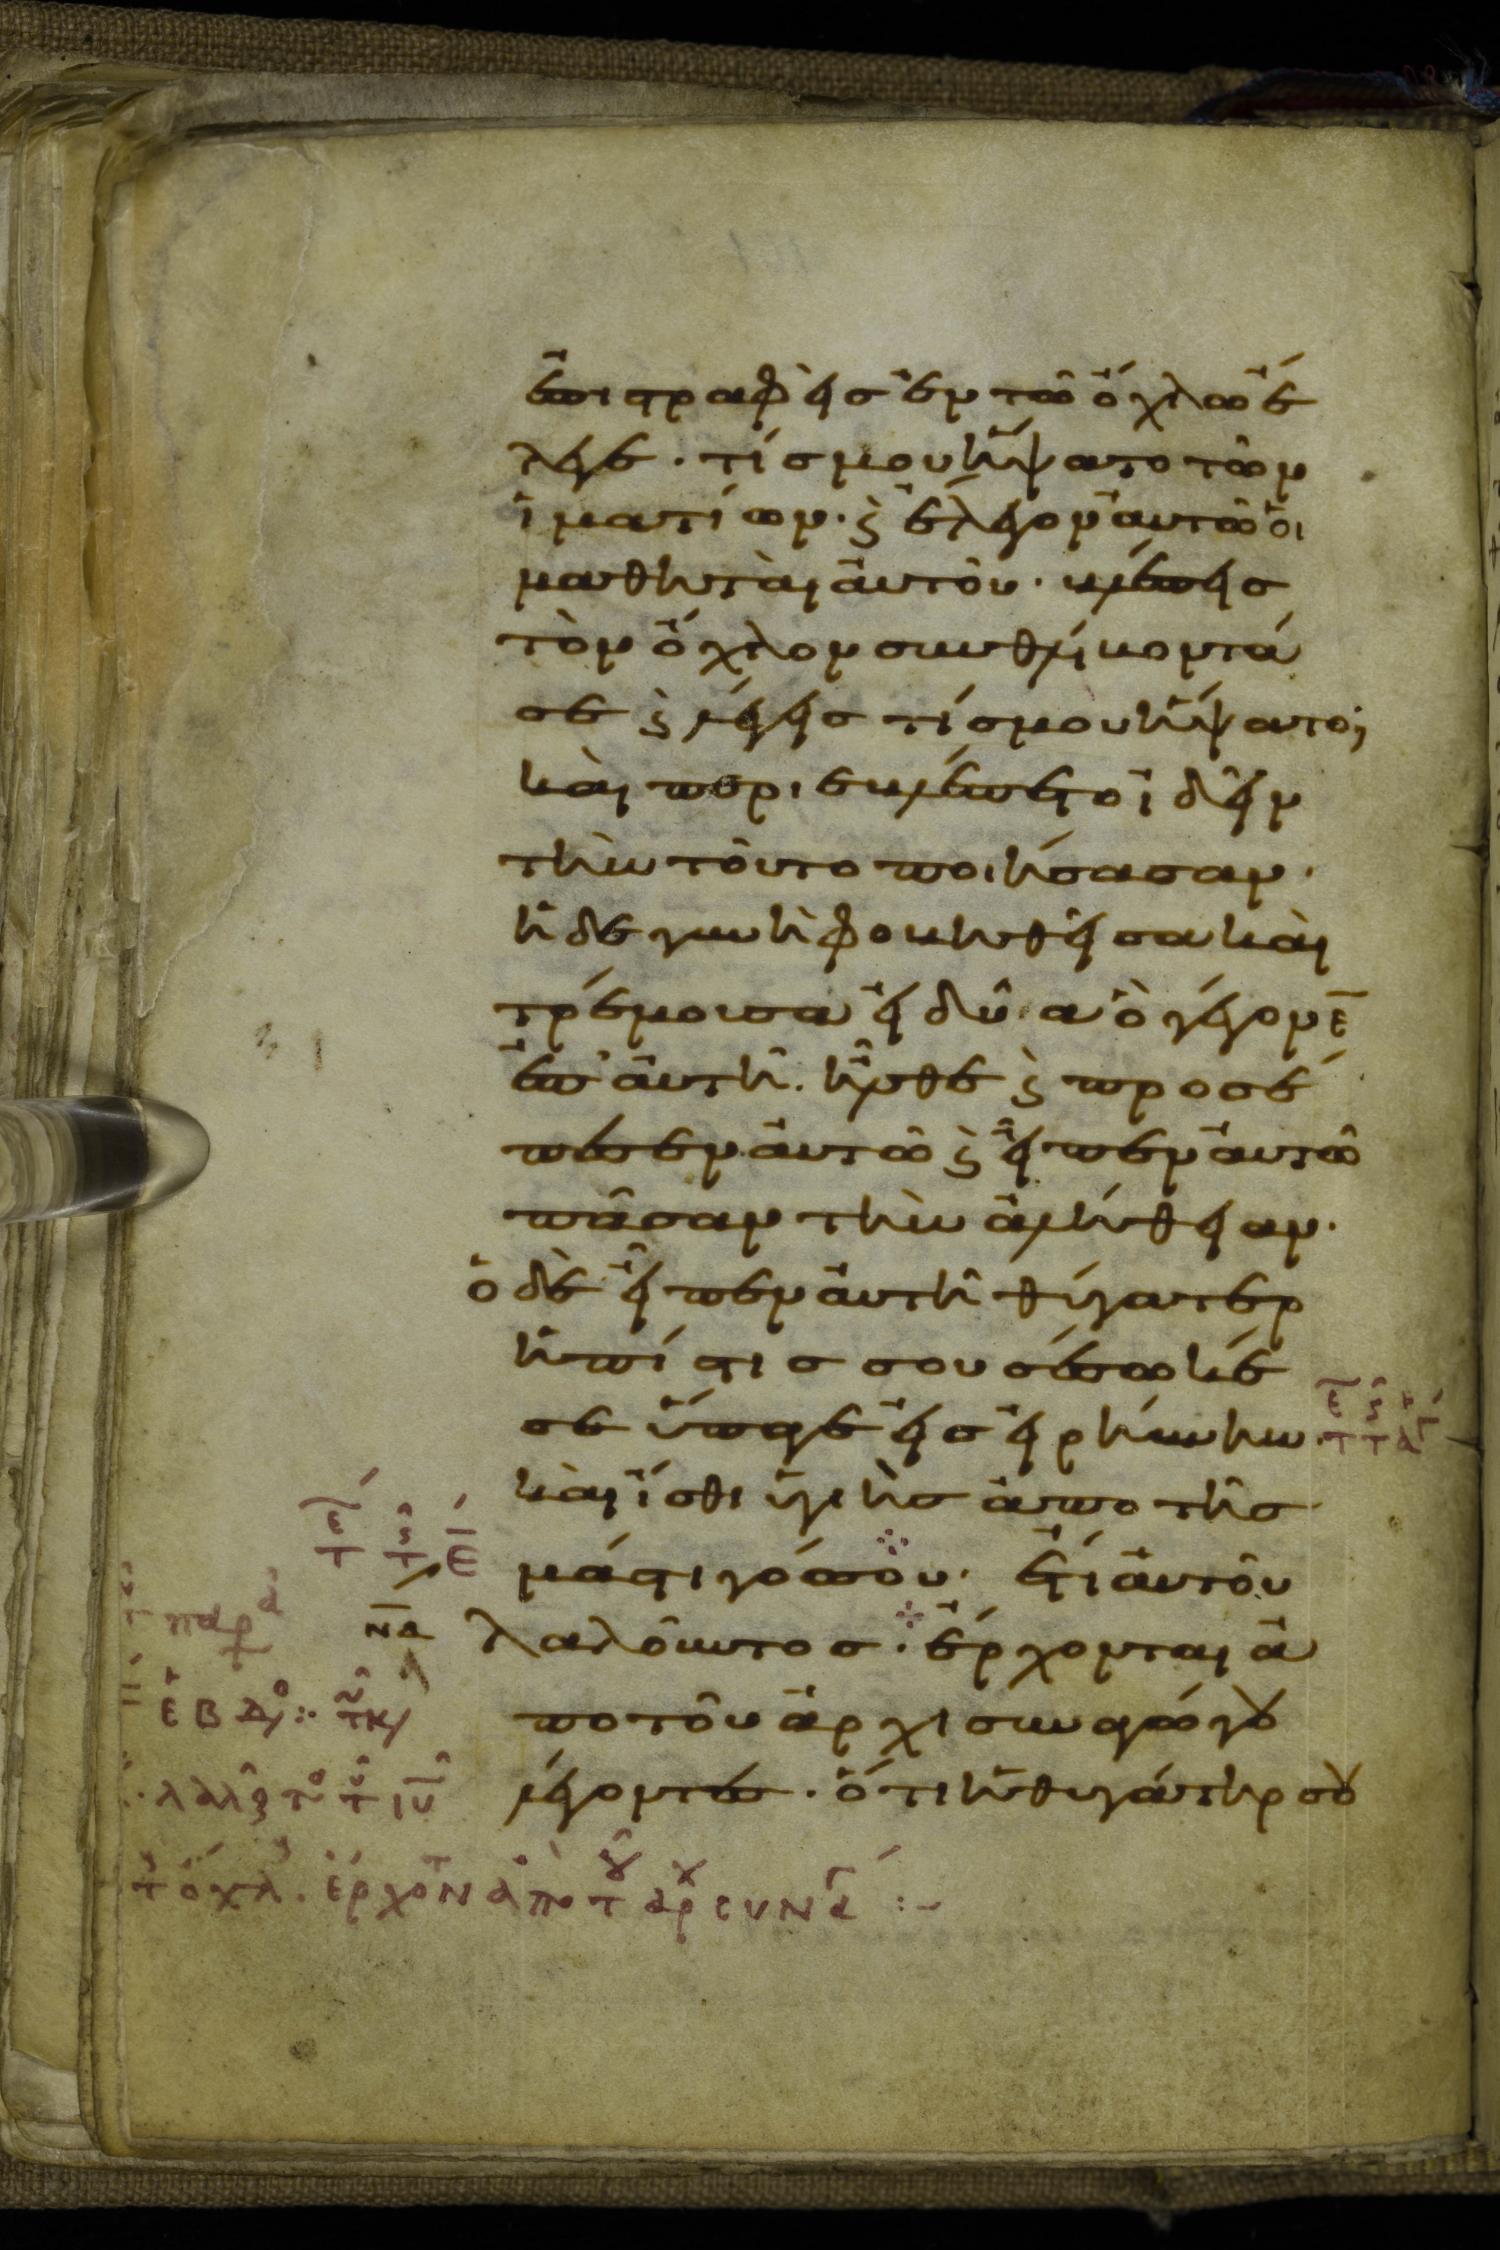 ἐπιστραφεὶς ἐν τῶ ὄχλω ἔ
λεγε· τίς μου ἥψατο τῶν
ἱματίων· ϗ ἔλεγον αὐτῶ οἱ
μαθηταὶ αὐτοῦ· βλέπεις
τὸν ὄχλον συνθλίβοντά
σε ϗ λέγεις τίς μου ἥψατο;
καὶ περιεβλέπετο ἰδεῖν
τὴν τοῦτο ποιήσασαν·
ἡ δὲ γυνὴ φοβηθεῖσα καὶ
τρέμουσα εἰδυῖα ὃ γέγονεν
ἐπ' αὐτῆ. ἦλθε ϗ προσέ
πεσεν αὐτῶ ϗ εἶπεν αὐτῶ
πᾶσαν τὴν ἀλήθειαν·
ὁ δὲ εἶπεν αὐτῆ θύγατερ
ἡ πίστις σου σέσωκέ
σε ὕπαγε εἰς εἰρήνην·
καὶ ἴσθι ὑγιὴς ἀπὸ τῆς
μάστιγός σου· ἔτι αὐτοῦ
να λαλοῦντος· ἔρχονται ἀ
πὸ τοῦ ἀρχισυναγώγου
λέγοντες· ὅτι ἡ θυγάτηρ σου